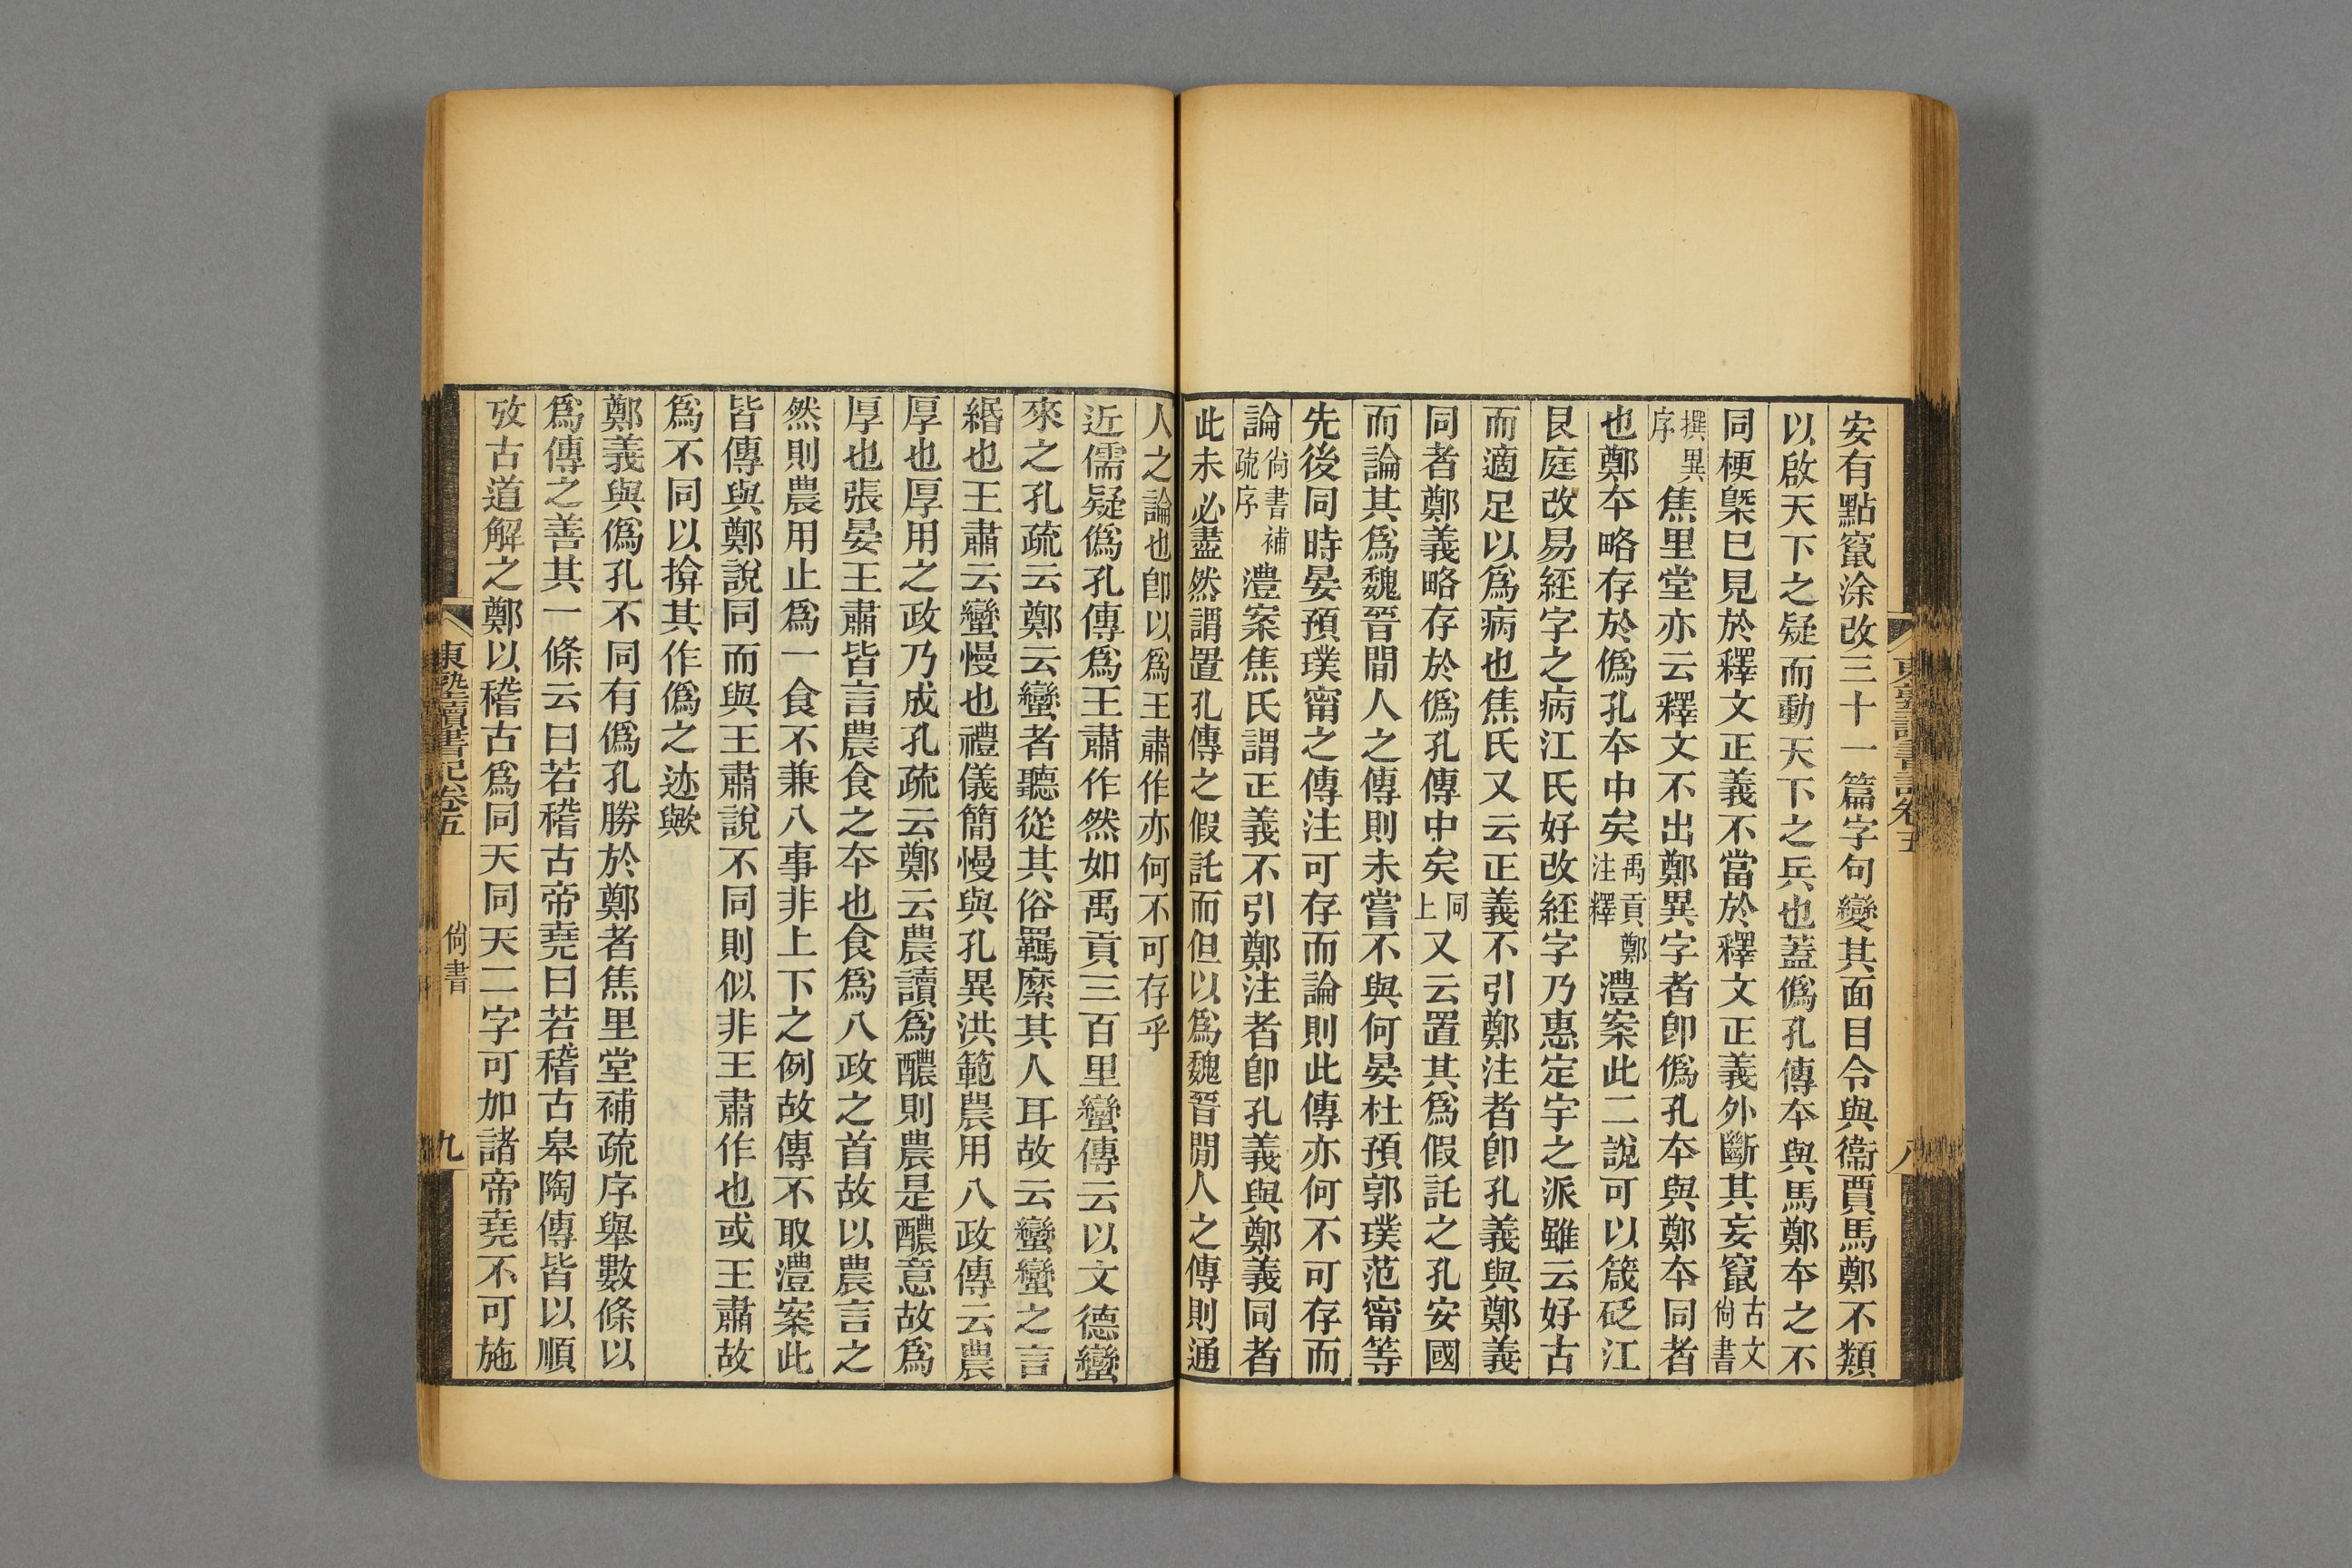 安有點竄涂改三十一篇字句變其面目令與衞賈馬鄭不類
以啟天下之疑而動天下之兵也蓋僞孔傳夲與馬鄭夲之不
同梗槩巳見於釋文正義不當於釋文正義外斷其妄竄古文尙書
撰異序焦里堂亦云釋文不出鄭異字者卽僞孔夲與鄭夲同者
也鄭夲略存於僞孔夲中矣禹貢鄭注釋澧案此二說可以箴砭江
艮庭改易經字之病江氏好改經字乃惠定宇之派雖云好古
而適足以爲病也焦氏又云正義不引鄭注者卽孔義與鄭義
同者鄭義略存於僞孔傳中矣同上又云置其爲假託之孔安國
而論其爲魏晉閒人之傳則未嘗不與何晏杜預郭璞范甯等
先後同時晏預璞甯之傳注可存而論則此傳亦何不可存而
論尙書補疏序澧案焦氏謂正義不引鄭注者卽孔義與鄭義同者
此未必盡然謂置孔傳之假託而但以爲魏晉閒人之傳則通
人之論也卽以爲王肅作亦何不可存乎
近儒疑僞孔傳爲王肅作然如禹貢三百里蠻傳云以文德蠻
來之孔疏云鄭云蠻者聽從其俗羈縻其人耳故云蠻蠻之言
緡也王肅云蠻慢也禮儀簡慢與孔異洪範農用八政傳云農
厚也厚用之政乃成孔疏云鄭云農讀爲醲則農是醲意故爲
厚也張晏王肅皆言農食之夲也食爲八政之首故以農言之
然則農用止爲一食不兼八事非上下之例故傳不取澧案此
皆傳與鄭說同而與王肅說不同則似非王肅作也或王肅故
爲不同以揜其作僞之迹歟
鄭義與僞孔不同有僞孔勝於鄭者焦里堂補疏序舉數條以
爲傳之善其一條云曰若稽古帝堯曰若稽古皋陶傳皆以順
攷古道解之鄭以稽古爲同天同天二字可加諸帝堯不可施
東塾讀書記卷五 尙書 九